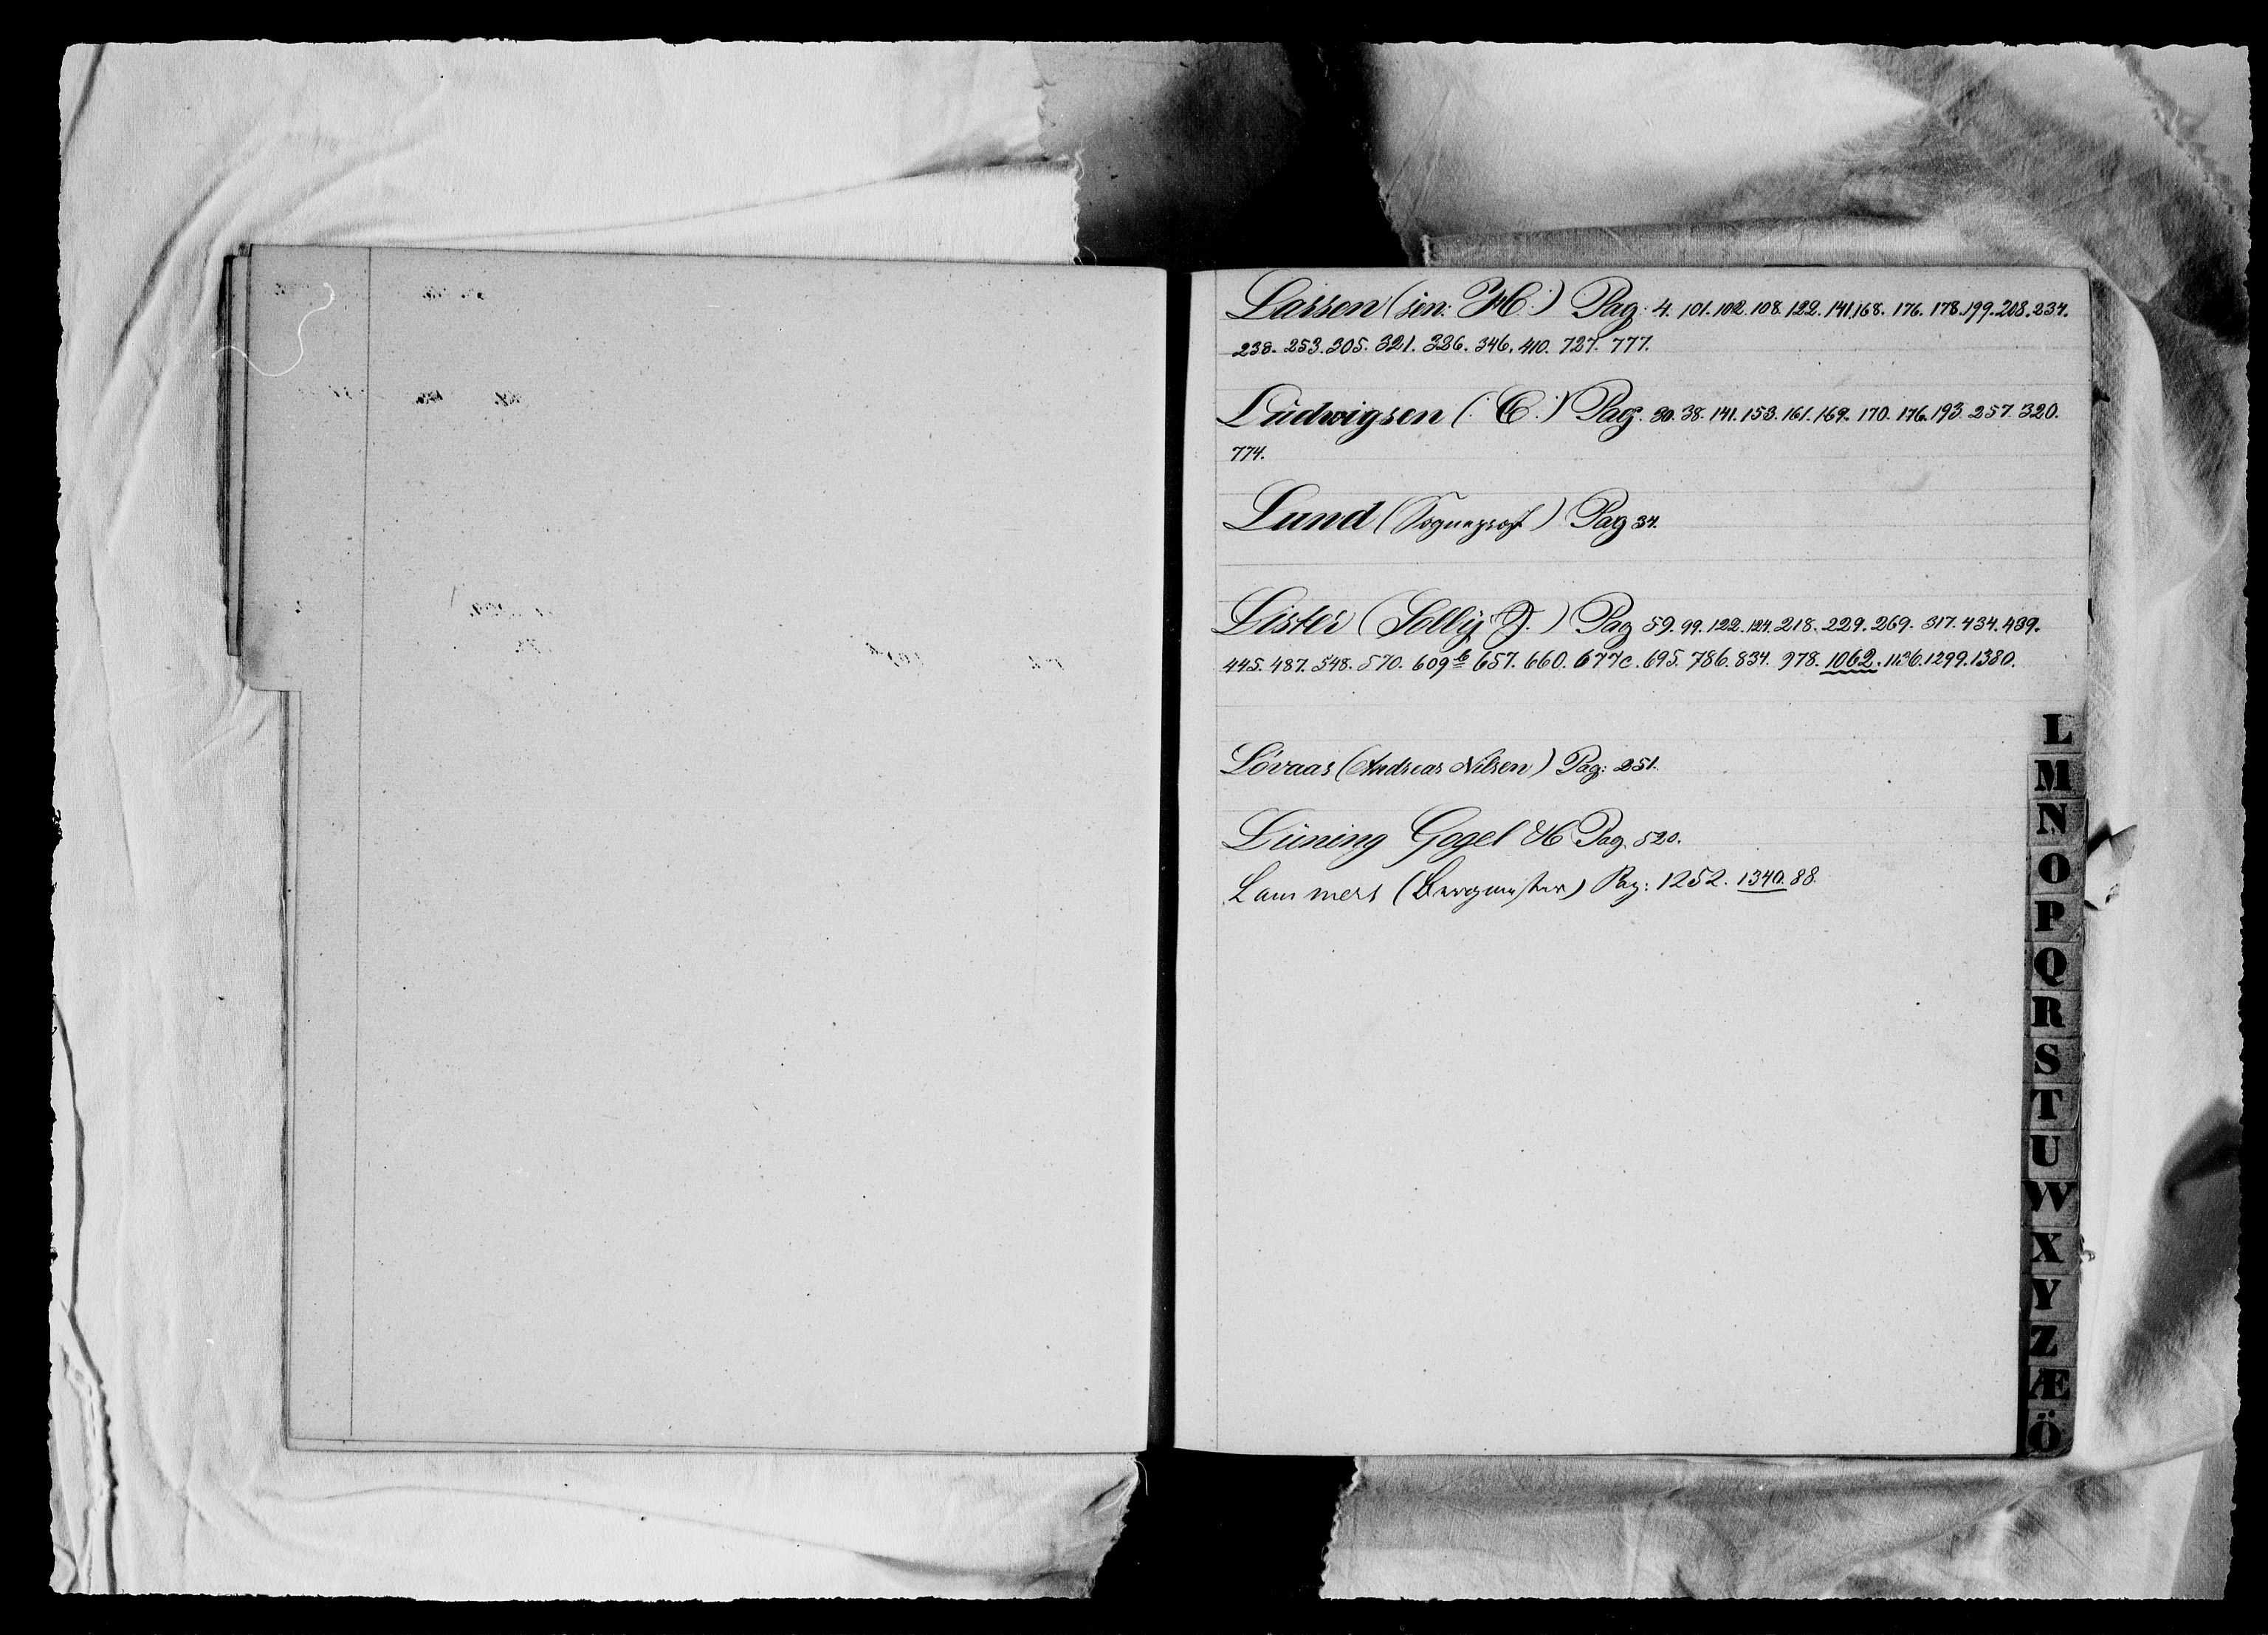 Larsen (sen: H.) Pag: 4. 101. 102. 108. 122. 141. 168. 176. 178. 199. 208. 234.
238. 253. 305. 321. 336. 346. 410. 727. 777.
Ludwigsen (: C.) Pag. 30. 38. 141. 153. 161. 169. 170. 176. 193. 257. 320.
774.
Lund (Sogneprest) Pag 34.
Lister (Solly J.) Pag 59. 99. 122. 124. 218. 229. 269. 317. 434. 439.
445. 487. 548. 570. 609 b 657. 660. 677c. 695. 786. 834. 978. 1062. 1136. 1299. 1380.
Lövaas (Andreas Nilsen) Pag: 251.
Lüning Gogel & C Pag. 520.
Lammers (Bergmester) Pag: 1252. 1340. 88.
L
M
N
O
P
Q
R
S
T
U
W
X
Y
Z
Æ
Ö